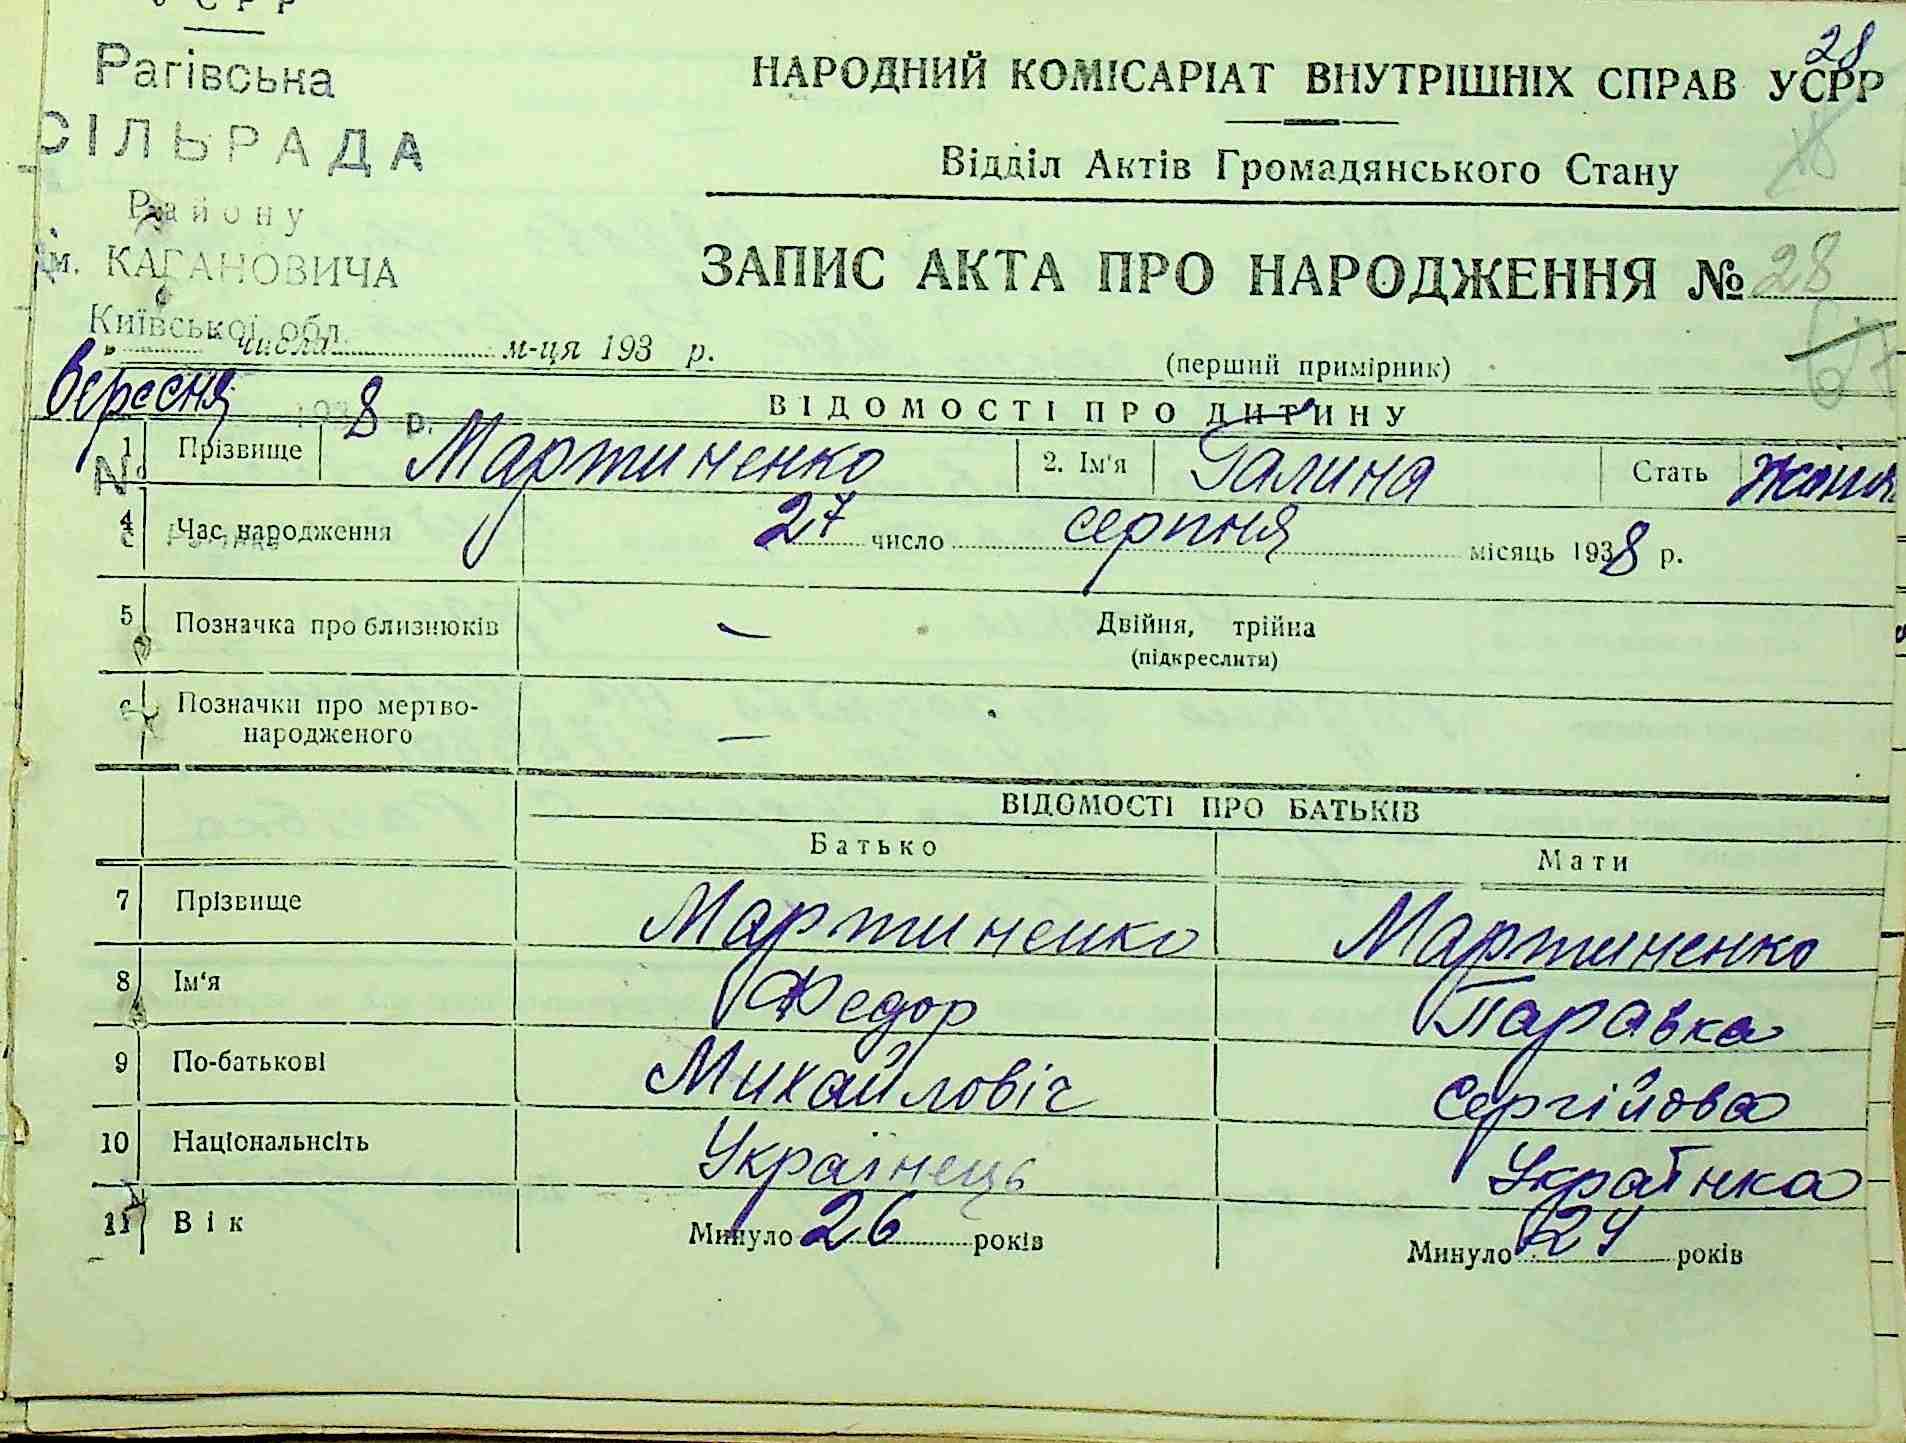 УСРР
Рагівська
СІЛЬРАДА
Району
ім. КАГАНОВИЧА
Київської обл.
Вересня 1938 р.
№
28
НАРОДНИЙ КОМІСАРІАТ ВНУТРІШНІХ СПРАВ УСРР
Відділ Актів Громадянського Стану
ЗАПИС АКТА ПРО НАРОДЖЕННЯ № 28
67
числа м-ця 193 р.
(перший примірник)
ВІДОМОСТІ ПРО ДИТИНУ
1 Прізвище Мартиненко 2. Ім'я Галина Стать
4 Час народження 27 число серпня місяць 1938 р.
5 Позначка про близнюків — Двійня, трійна
(підкреслити)
6 Позначки про мертво-
народженого —
ВІДОМОСТІ ПРО БАТЬКІВ
Батько Мати
7 Прізвище Мартиненко Мартиненко
8 Ім'я Федор Паравка
9 По-батькові Михайловіч Сергійова
10 Національнсіть Українець Українка
11 Вік Минуло 26 років Минуло 24 років